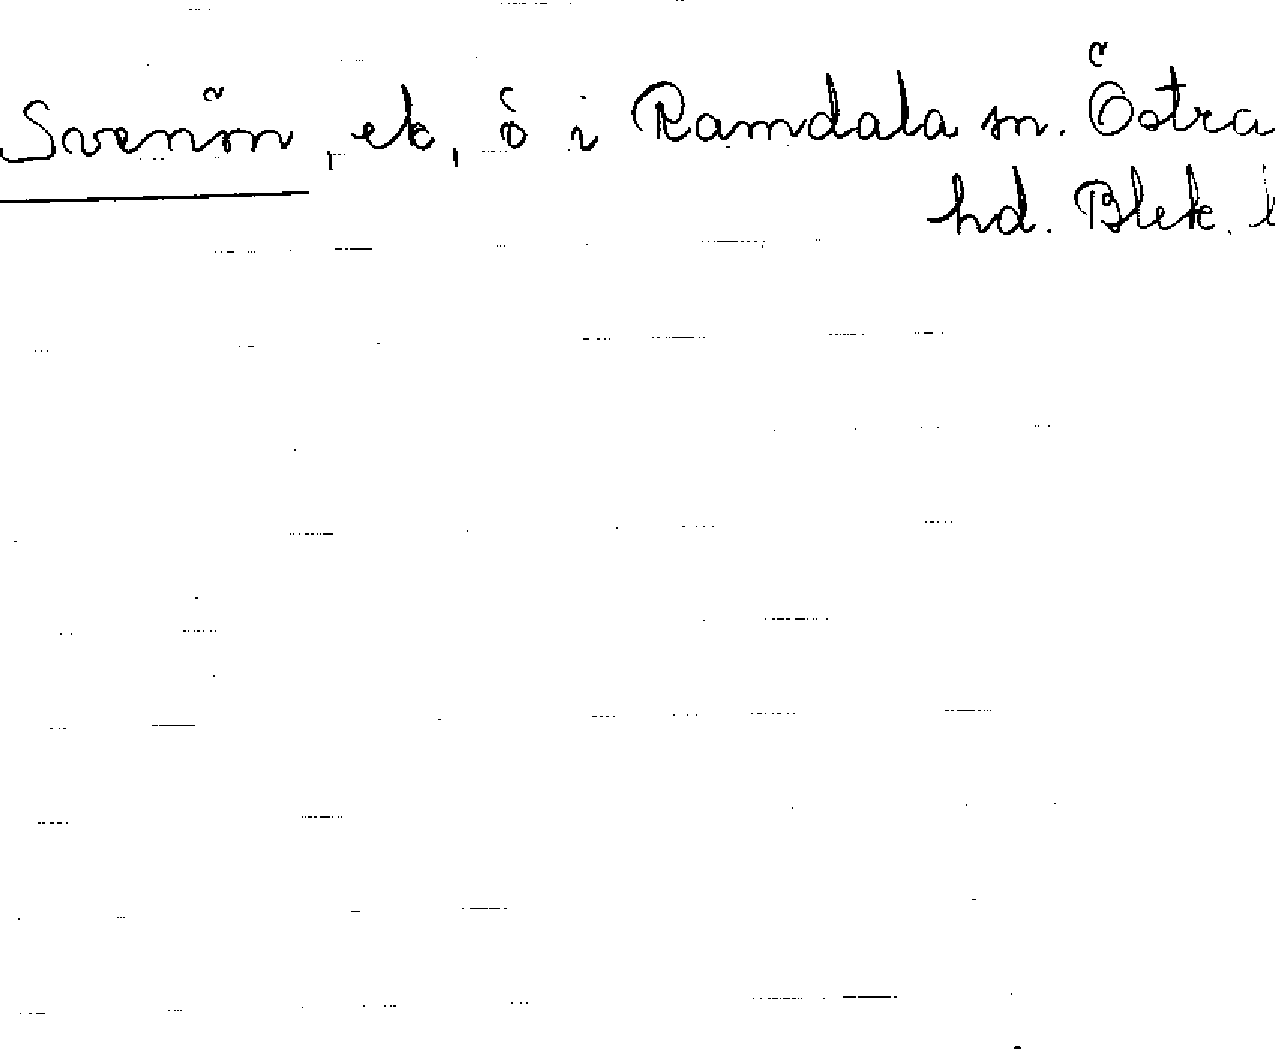 Svenön, ek, ö i Ramdala sn. Östra
hd. Blek. l